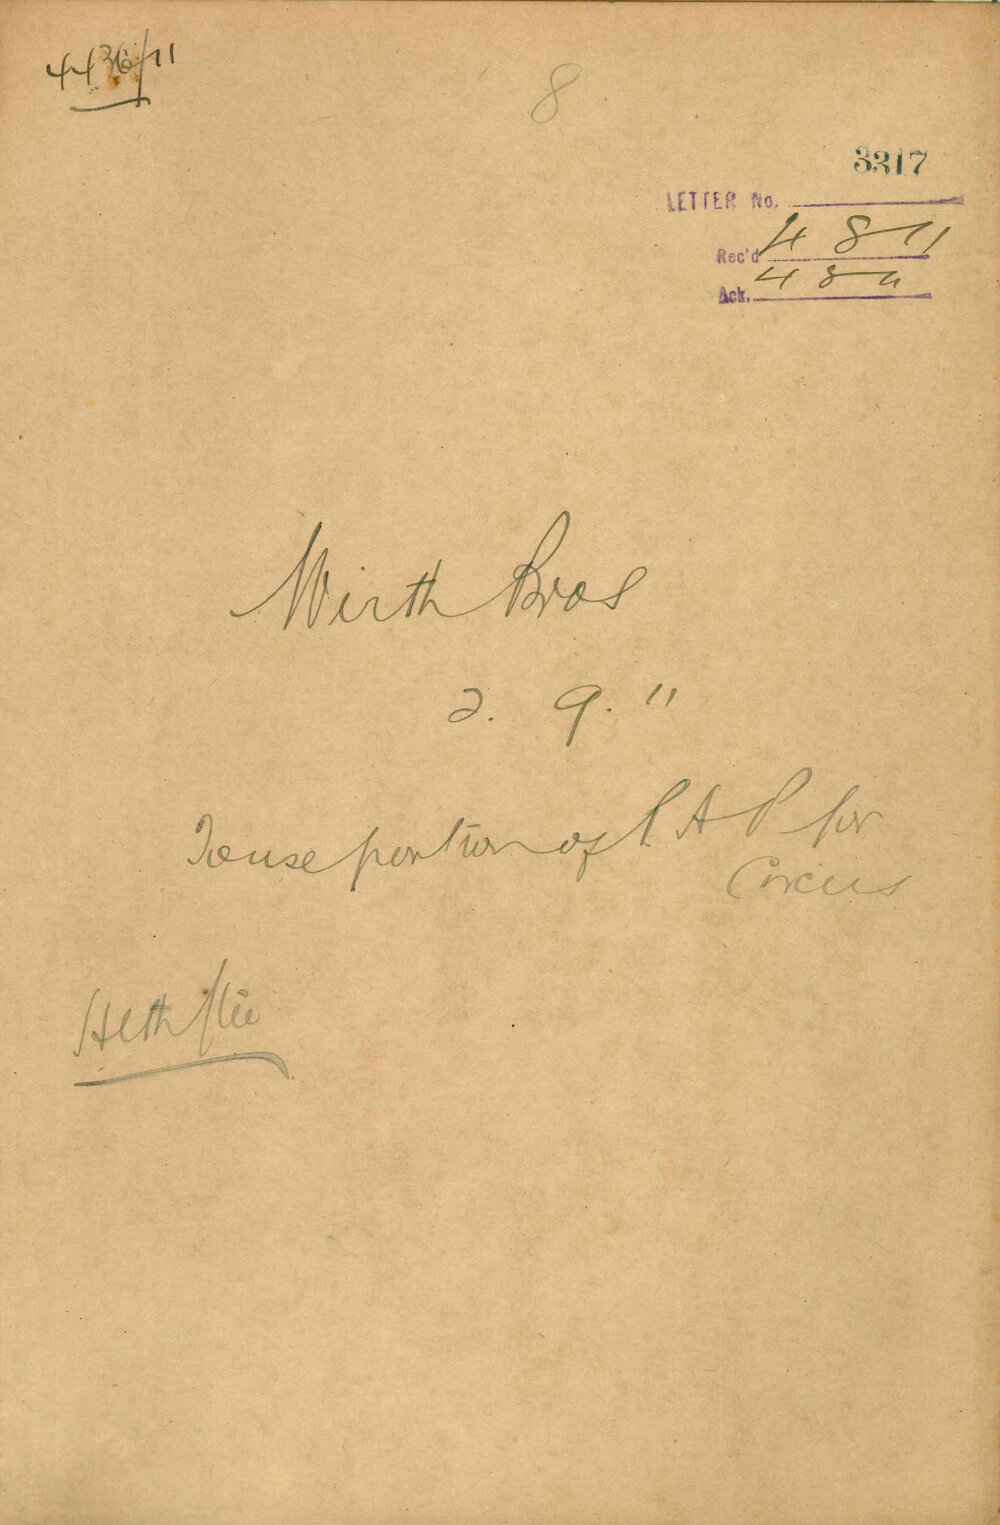 4436/11
8
3317
LETTER No.
Rec'd 4 8 11
Ack. 4 8 11
Wirth Bros
2. 9. 11
To use portion of P A P for
Circus
Hlth